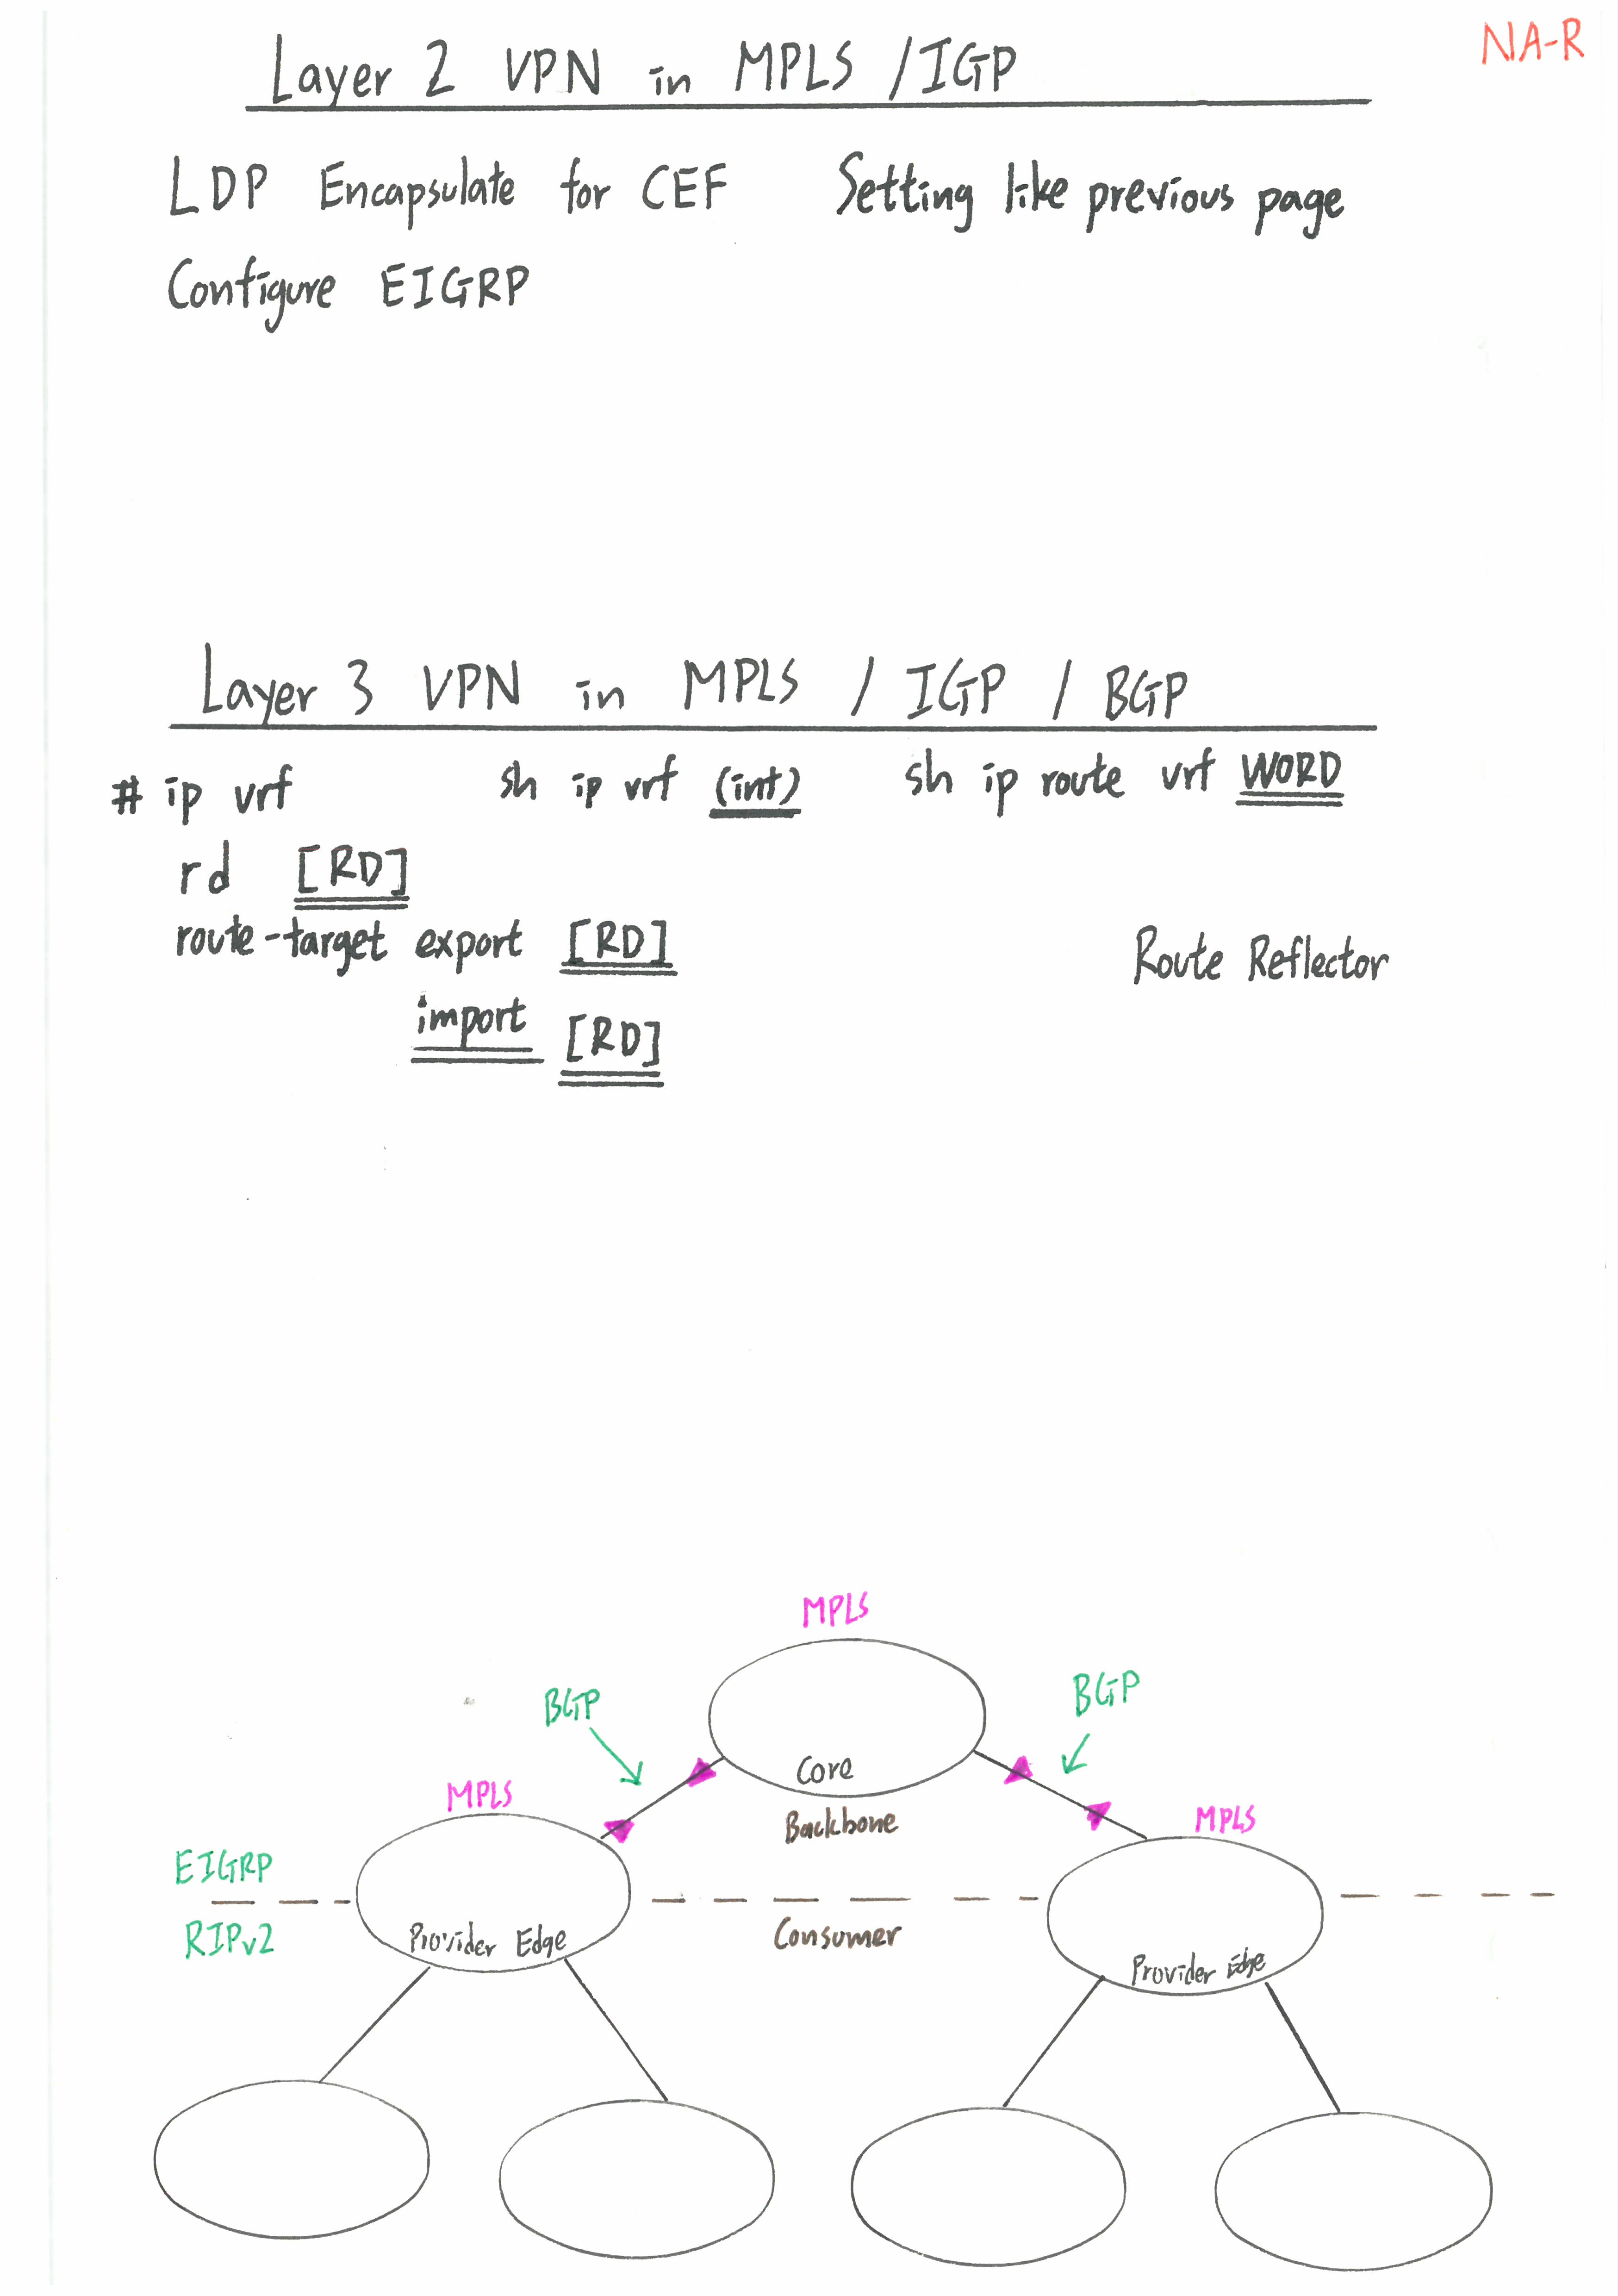 NA-R
Layer 2 VPN in MPLS / IGP
LDP Encapsulate for CEF Setting like previous page
Configure EIGRP
Layer 3 VPN in MPLS / IGP / BGP
# ip vrf sh ip vrf (int) sh ip route vrf WORD
rd [RD]
route-target export [RD]
Route Reflector
import [RD]
MPLS
BGP
BGP
Core
MPLS
Backbone
MPLS
EIGRP
RIPv2
Provider Edge
Consumer
Provider Edge